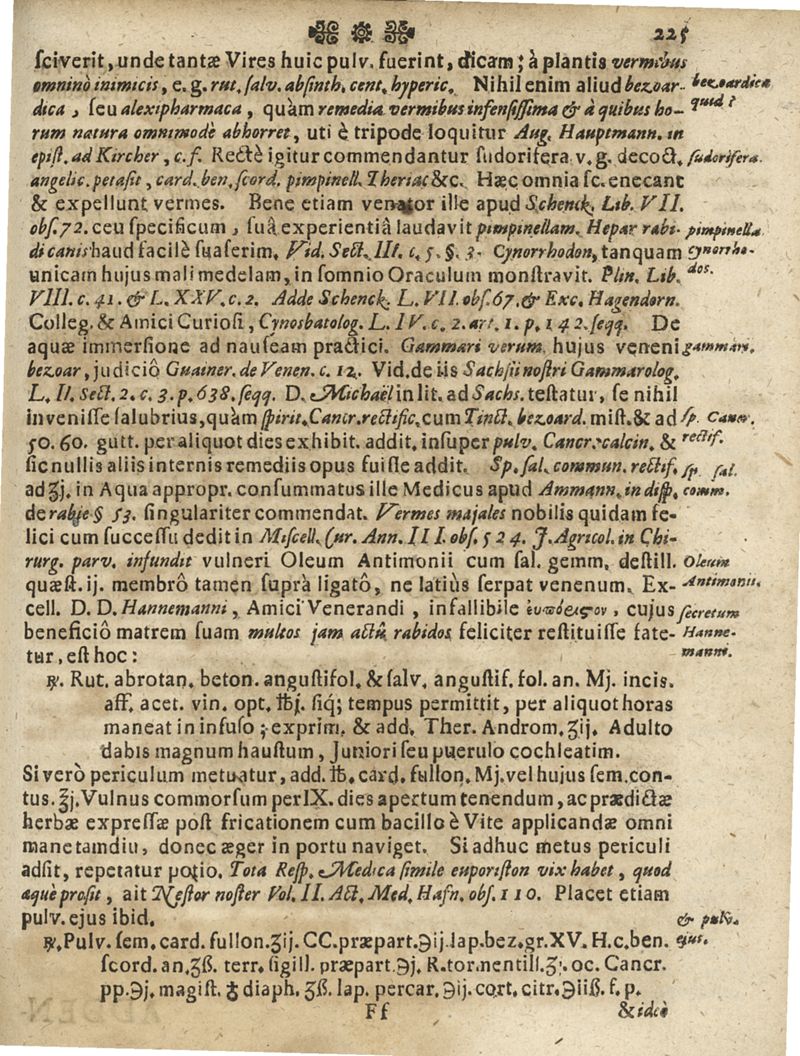 225
sciverit, unde tantæ Vires huic pulv. fuerint, dicam; à plantis vermibus
omninò inimicis, e. g. rut. salv. absinth. cent. hyperic. Nihil enim aliud bezoar- bezoardica
dica, seu alexipharmaca, quàm remedia vermibus infensissima & à quibus ho- quid?
rum natura omnimodè abhorret, uti è tripode loquitur Aug. Hauptmann. in
epist. ad Kircher, c. f. Rectè igitur commendantur sudorifera v. g. decoct. sudorifera.
angelic. petasit, card. ben. scord. pimpinell. Theriac &c. Hæc omnia sc. enecant
& expellunt vermes. Bene etiam venator ille apud Schenck. Lib. VII.
obs. 72. ceu specificum, suâ experientiâ laudavit pimpinellam. Hepar rabi- pimpinella
di canis haud facilè suaserim. Vid. Sect. III. c. 5. §. 3. Cynorrhodon, tanquam cynorrho-
unicam hujus mali medelam, in somnio Oraculum monstravit. Plin. Lib. dos.
VIII. c. 41. & L. XXV. c. 2. Adde Schenck. L. VII. obs. 67. & Exc. Hagendorn.
Colleg. & Amici Curiosi, Cynosbatolog. L. IV. c. 2. art. 1. p. 142. seqq. De
aquæ immersione ad nauseam practici. Gammari verum hujus veneni gammari.
bezoar, judiciô Guainer. de Venen. c. 12. Vid. de iis Sachsii nostri Gammarolog.
L. II. Sect. 2. c. 3. p. 638. seqq. D. Michaël in lit. ad Sachs. testatur, se nihil
invenisse salubrius, quàm spirit. Cancr. rectific. cum Tinct. bezoard. mist. & ad sp. Cancr.
50. 60. gutt. per aliquot dies exhibit. addit. insuper pulv. Cancr. calcin. & rectif.
sic nullis aliis internis remediis opus fuisse addit. Sp. sal. commun. rectif. sp. sal.
ad ʒj. in Aqua appropr. consummatus ille Medicus apud Ammann. in disp. comm.
de rabie § 53. singulariter commendat. Vermes majales nobilis quidam fe-
lici cum successu dedit in Miscell. Cur. Ann. III. obs. 524. J. Agricol. in Chi-
rurg. parv. infundit vulneri Oleum Antimonii cum sal. gemm. destill. Oleum
quæst. ij. membrô tamen suprà ligatô, ne latiùs serpat venenum. Ex- Antimonii.
cell. D. D. Hannemanni, Amici Venerandi, infallibile cujus secretum
beneficiô matrem suam multos jam actû rabidos feliciter restituisse fate- Hanne-
tur, est hoc: manni.
℞. Rut. abrotan. beton. angustifol. & salv. angustif. fol. an. Mj. incis.
aff. acet. vin. opt. ℔j. siq; tempus permittit, per aliquot horas
maneat in infuso; exprim. & add. Ther. Androm. ʒij. Adulto
dabis magnum haustum, Juniori seu puerulo cochleatim.
Si verò periculum metuatur, add. ℔. card. fullon. Mj. vel hujus sem. con-
tus. ʒj. Vulnus commorsum per IX. dies apertum tenendum, ac prædictæ
herbæ expressæ post fricationem cum bacillo è Vite applicandæ omni
mane tamdiu, donec æger in portu naviget. Si adhuc metus periculi
adsit, repetatur potio. Tota Resp. Medica simile euporiston vix habet, quod
æquè prosit, ait Nestor noster Vol. II. Act. Med. Hafn. obs. 110. Placet etiam
pulv. ejus ibid. & pulv.
℞. Pulv. sem. card. fullon. ʒij. CC. præpart. ℈ij. lap. bez. gr. XV. H. c. ben. ejus.
scord. an. ʒß. terr. sigill. præpart. ℈j. R. tormentill. oc. Cancr.
pp. ℈j. magist. ♁ diaph. ʒß. lap. percar. ℈ij. cort. citr. ℈iiß. f. p.
Ff & ideò